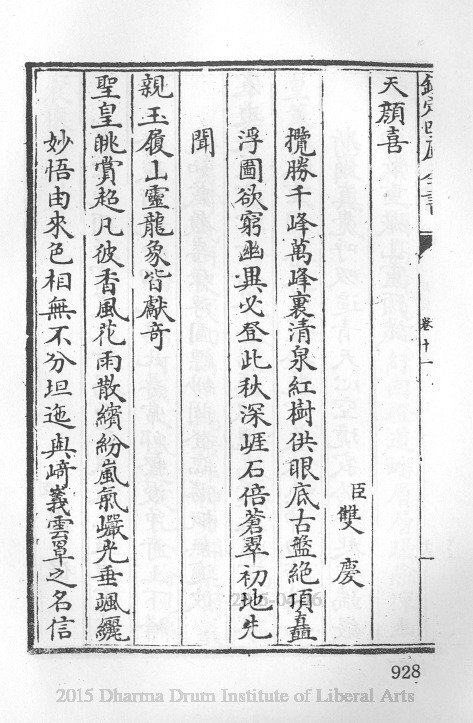 欽定四庫全書
卷十一
天顏喜
臣雙慶
攬勝千峰萬峰裏清泉紅樹供眼底古盤絶頂矗
浮圖欲窮幽異必登此秋深崕石倍蒼翠初地先
聞
親玉履山靈龍象皆獻奇
聖皇眺賞超凡彼香風花雨散繽紛嵐氣巘光垂颯纚
妙悟由來色相無不分坦迤與﨑義雲罩之名信
928
2015 Dharma Drum Institute of Liberal Arts